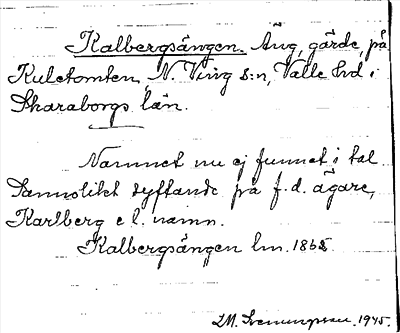 Kalbergsängen. Äng, gärde, på
Kuletomten, N. Ving s:n, Valle hd i
Skaraborgs län.
Namnet nu ej funnet i tal.
Sannolikt syftande på f.d. ägare,
Karlberg e l. namn.
Kalbergsängen lm. 1865
LM. Svenungsson. 1945.